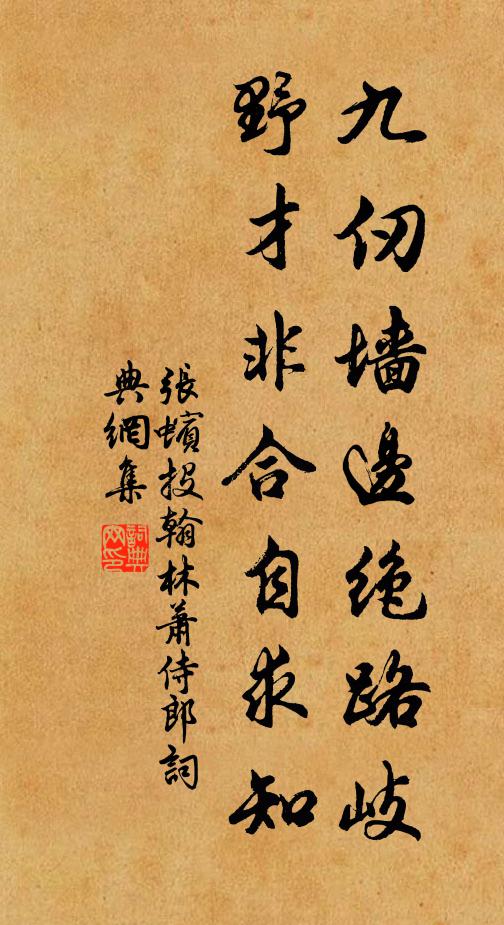 九仞墙邊絶路岐
野才非合自求知
張蠙投翰林蕭侍郎詞
典網集
詞典網印